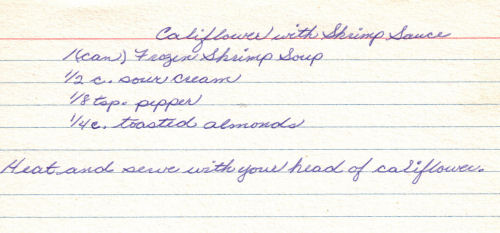 Califlower with Shrimp Sauce
1 (can) Frozen Shrimp Soup
1/2 c. sour cream
1/8 tsp. pepper
1/4 c. toasted almonds
Heat and serve with your head of califlower.